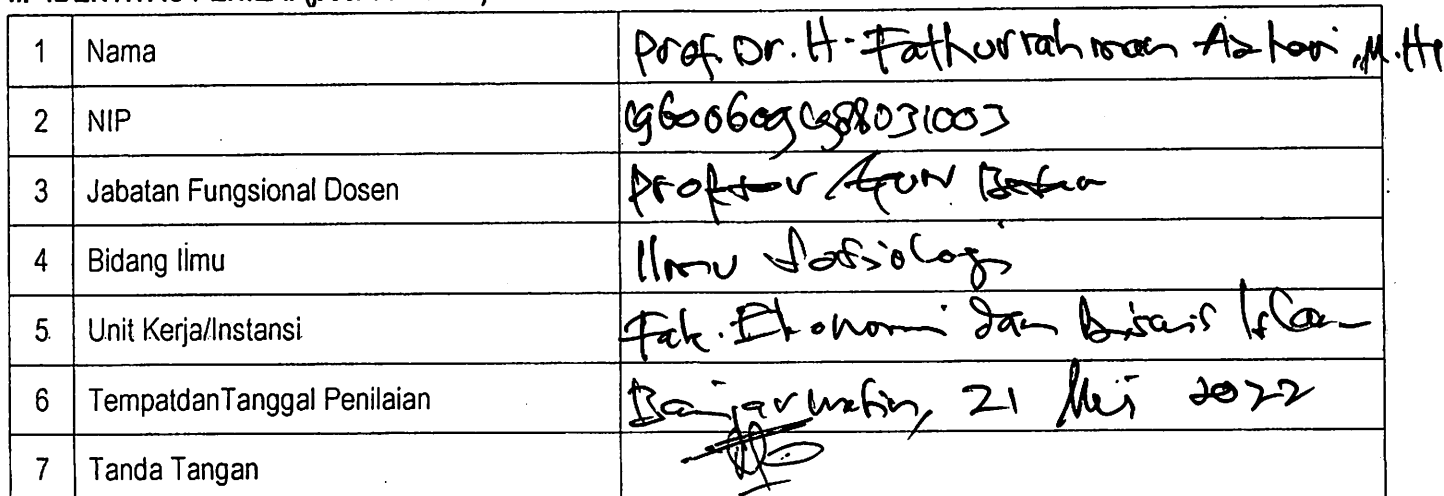 1 Nama Prof. Dr. H. Fathurrahman Azhari, M.HI
2 NIP 196006091988031003
3 Jabatan Fungsional Dosen Profesor / Guru Besar
4 Bidang Ilmu Ilmu Sosiologi
5. Unit Kerja/Instansi Fak. Ekonomi dan Bisnis Islam
6 TempatdanTanggal Penilaian Banjarmasin, 21 Mei 2022
7 Tanda Tangan